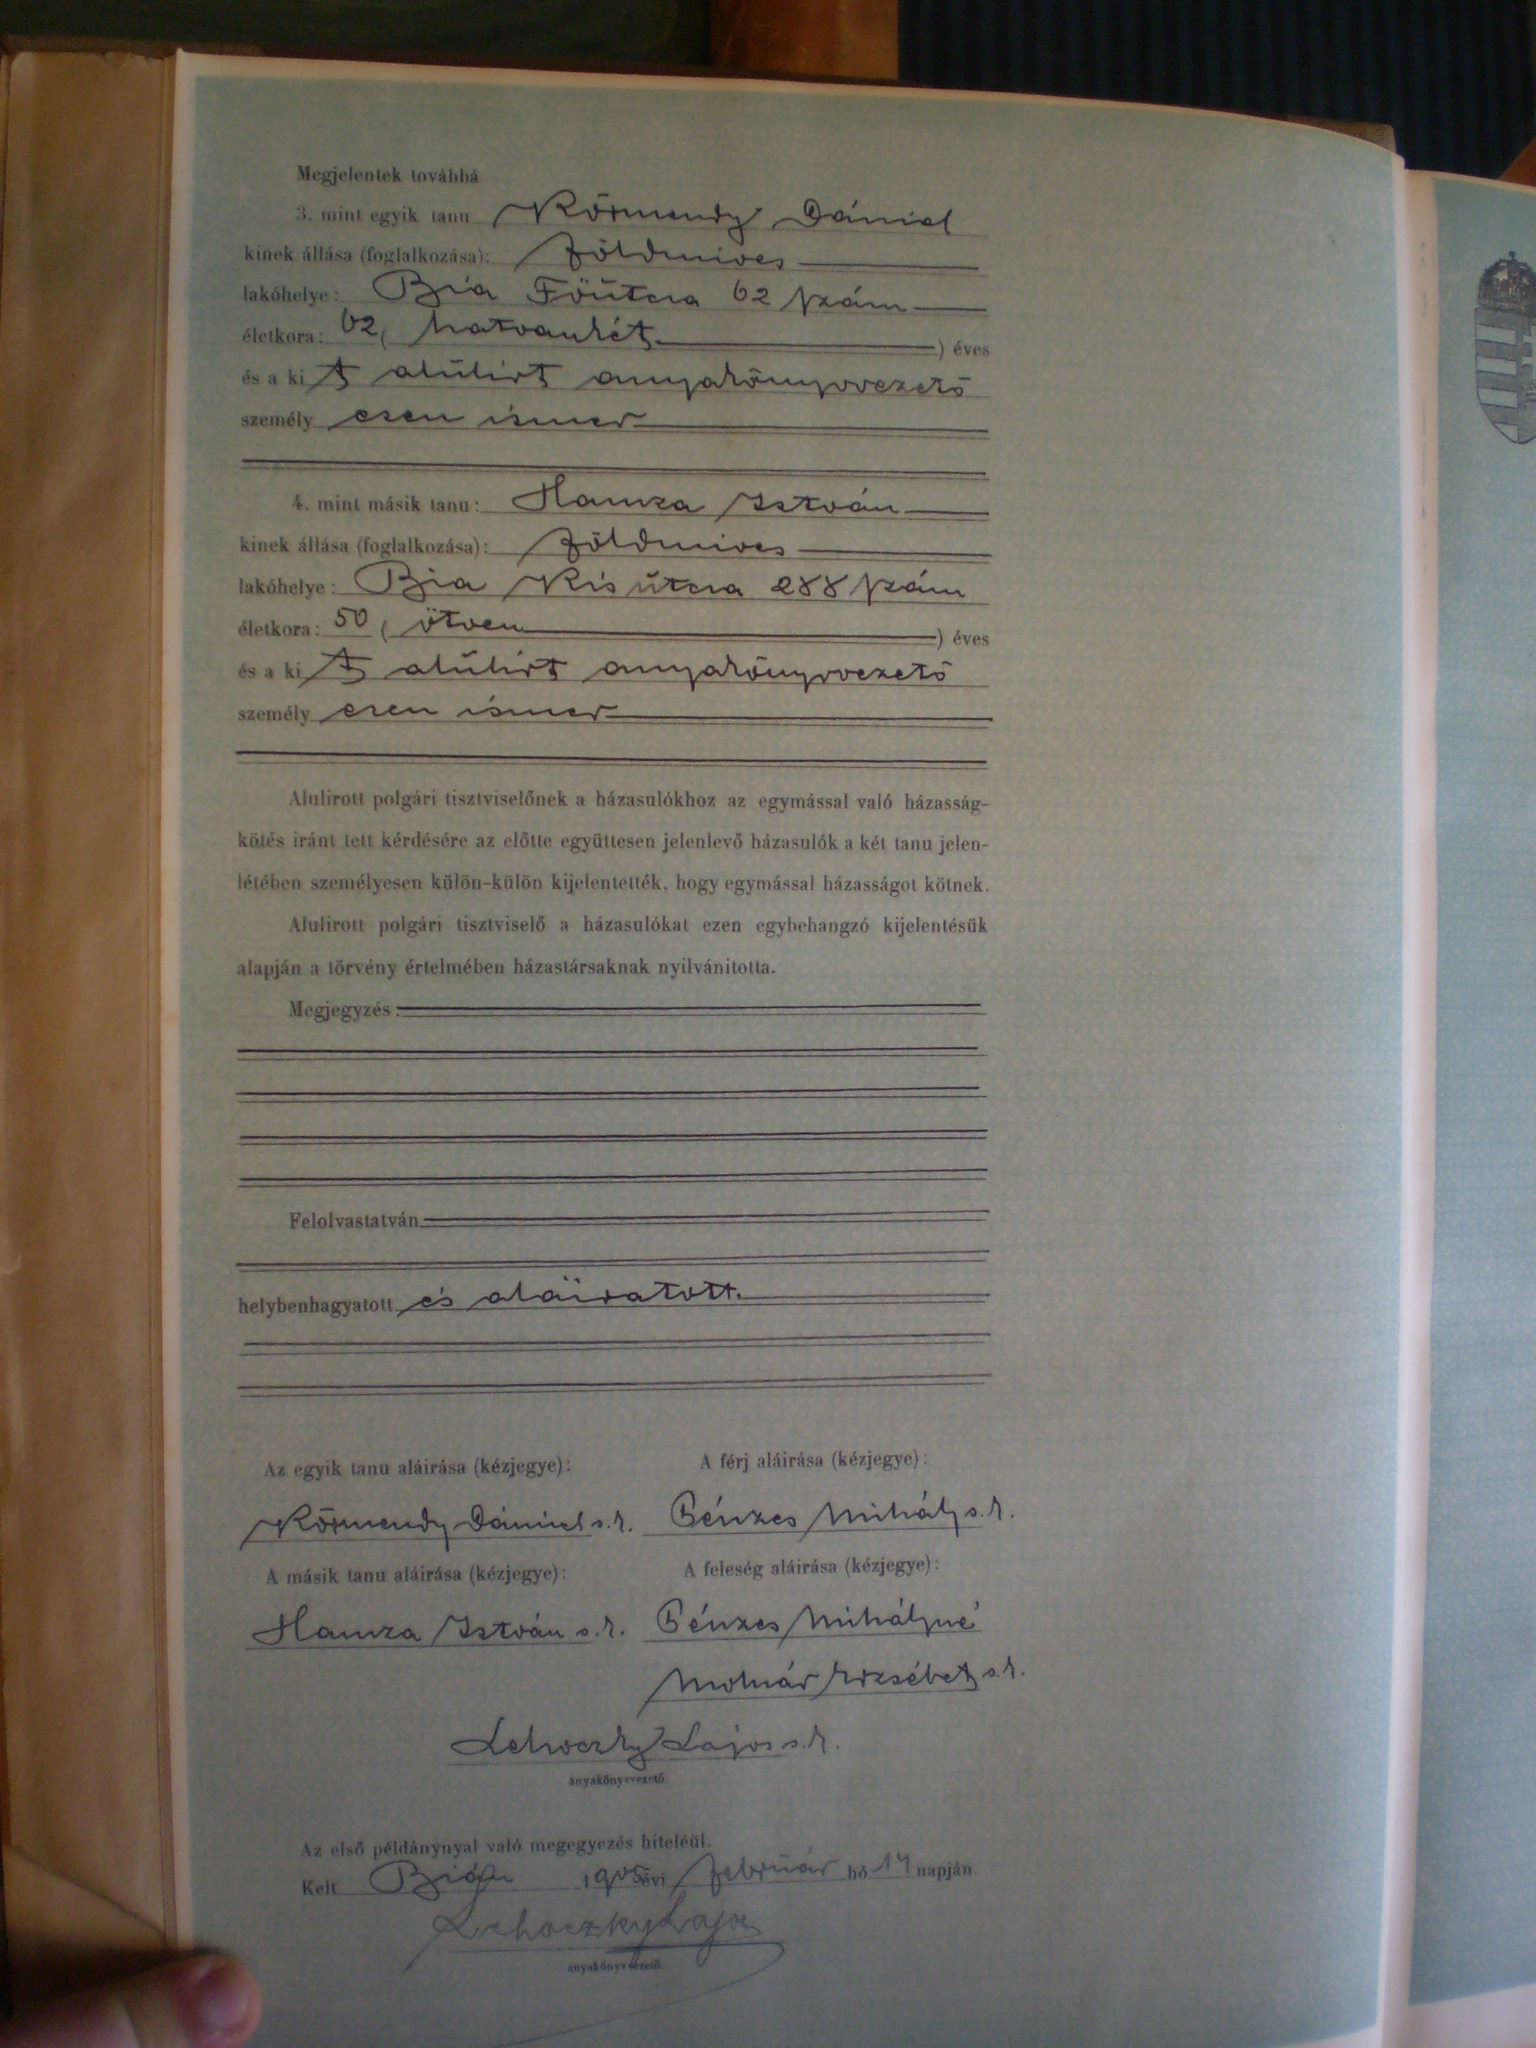 Megjelentek továbbá
3. mint egyik tanu Körmendy Dániel
kinek állása (foglalkozása): földmives
lakóhelye: Bia Főútcza 62 szám
életkora: 62 (hatvankét) éves
és a kit alúlirt anyakönyvvezető
személyesen ismer
4. mint másik tanu: Hamza István
kinek állása (foglalkozása): földmives
lakóhelye: Bia Kisútcza 288 szám
életkora: 50 (ötven) éves
és a kit alúlirt anyakönyvvezető
személyesen ismer
Alulirott polgári tisztviselőnek a házasulókhoz az egymással való házasság-
kötés iránt tett kérdésére az előtte együttesen jelenlevő házasulók a két tanu jelen-
létében személyesen külön-külön kijelentették, hogy egymással házasságot kötnek.
Alulirott polgári tisztviselő a házasulókat ezen egybehangzó kijelentésük
alapján a törvény értelmében házastársaknak nyilvánitotta.
Megjegyzés:
Felolvastatván
helybenhagyatott és aláiratott.
Az egyik tanu aláirása (kézjegye): A férj aláirása (kézjegye):
Körmendy Dániel s.k. Pénzes Mihály s.k.
A másik tanu aláirása (kézjegye): A feleség aláirása (kézjegye):
Hamza István s.k. Pénzes Mihályné
Molnár Erzsébet s.k.
Lehoczky Lajos s.k.
anyakönyvvezető.
Az első példánynyal való megegyezés hiteléül.
Kelt Bián 1905 évi február hó 14 napján.
Lehoczky Lajos
anyakönyvvezető.